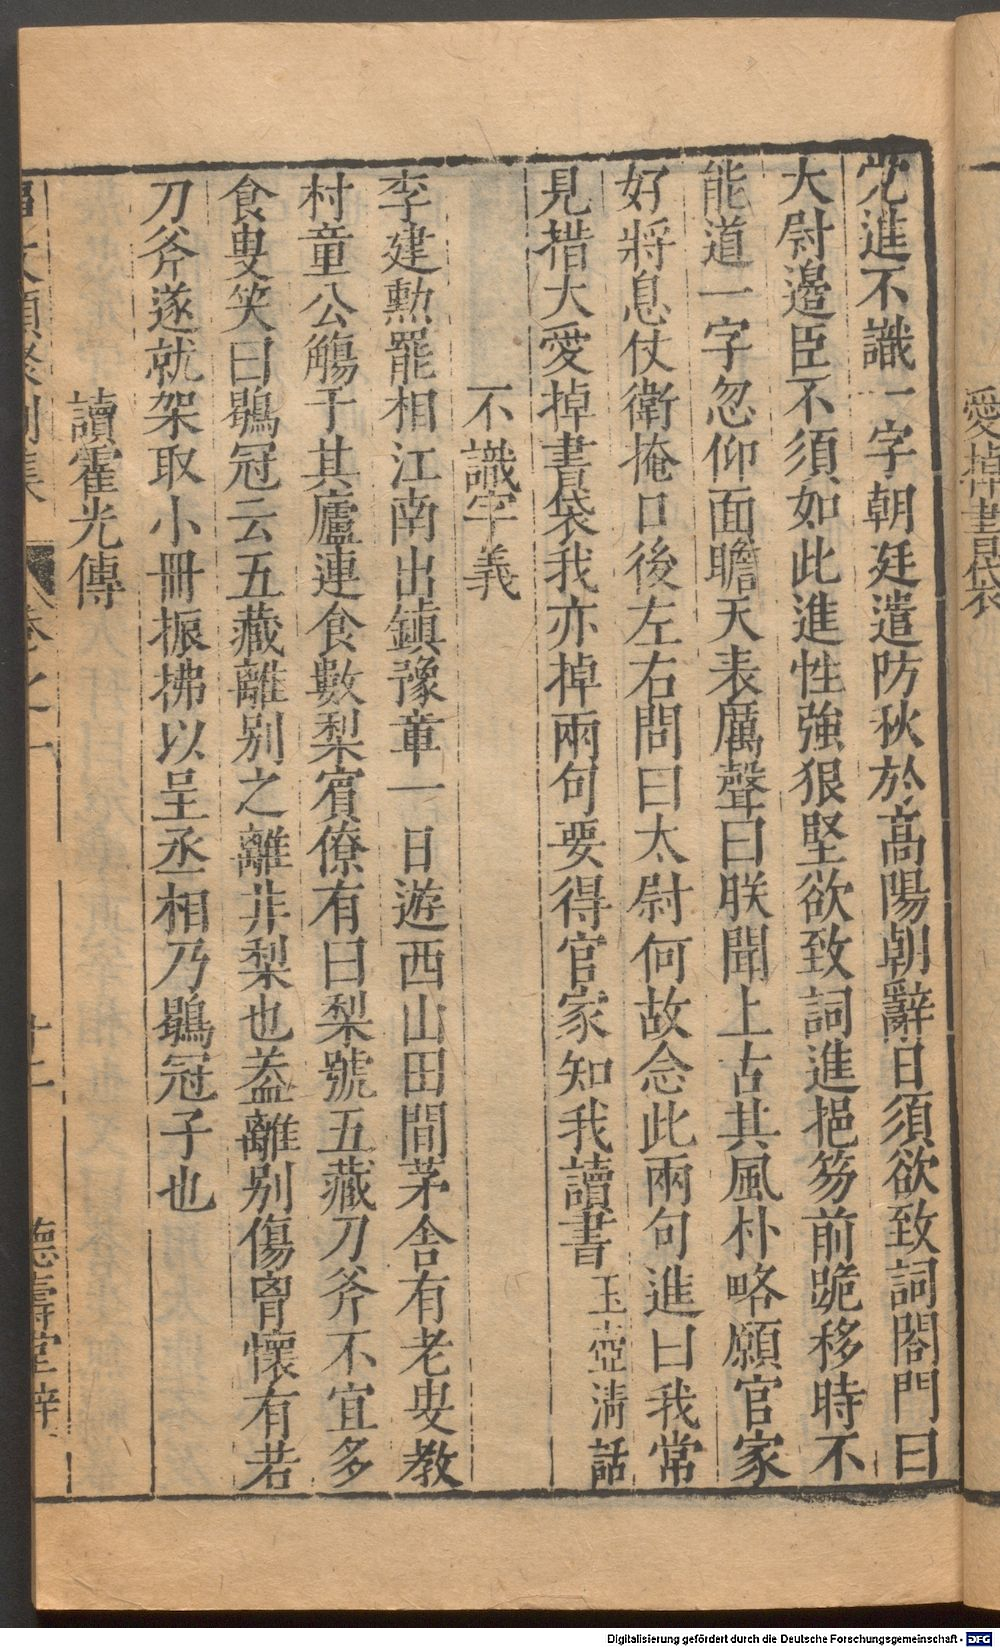 愛掉書袋
党進不識一字朝廷遣防秋於高陽朝辭日須欲致詞閤門曰
大尉邊臣不須如此進性強狠堅欲致詞進挹笏前跪移時不
能道一字忽仰面瞻天表厲聲曰朕聞上古其風朴略願官家
好將息仗衛掩口後左右問曰太尉何故念此兩句進曰我常
見措大愛掉書袋我亦掉兩句要得官家知我讀書 玉壺清話
不識字義
李建勲罷相江南出鎮豫章一日遊西山田間茅舎有老叟教
村童公觴于其廬連食數梨賔僚有曰梨號五藏刀斧不宜多
食叟笑曰鶡冠云五藏離别之離非梨也葢離别傷胷懷有若
刀斧遂就架取小冊振拂以呈丞相乃鶡冠子也
讀霍光傳
類聚別集 卷之一 十二 德壽堂梓
Digitalisierung gefördert durch die Deutsche Forschungsgemeinschaft - DFG